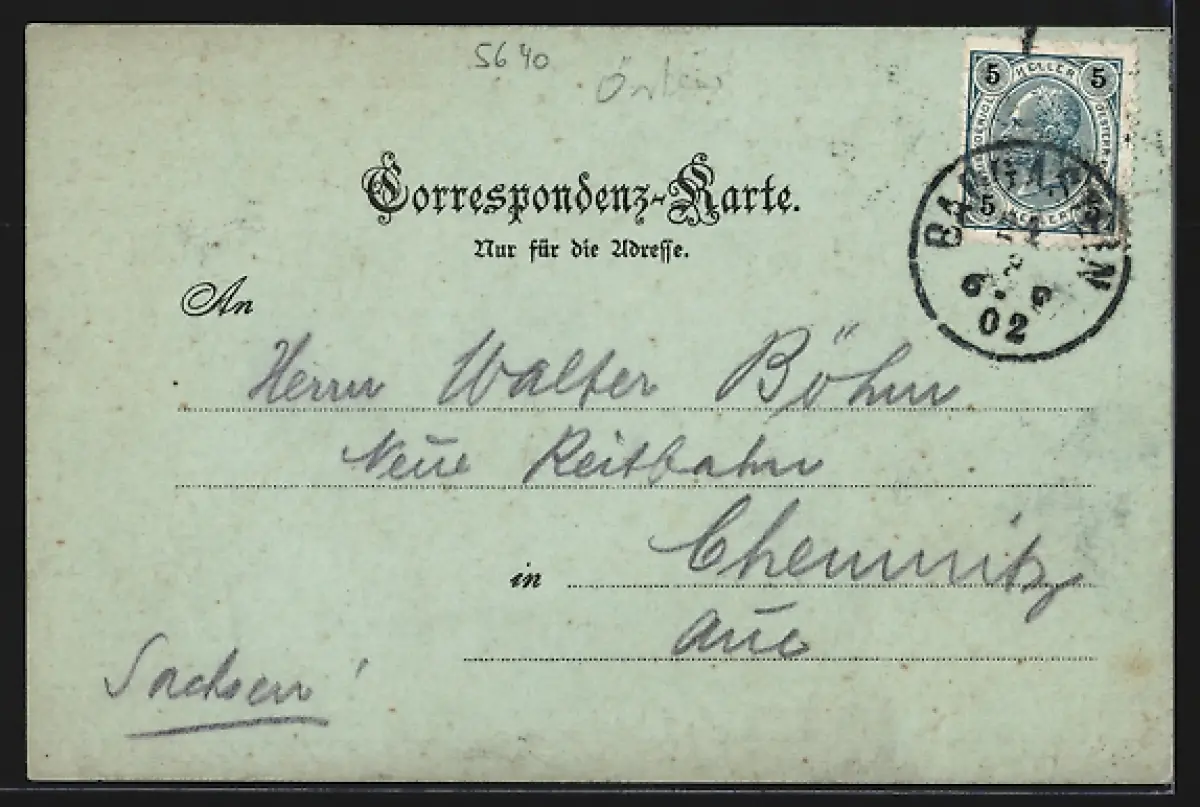 5640
5 HELLER 5
5 HELLER 5
6. 9
02
Correspondenz-Karte.
Nur für die Adresse.
An
Herrn Walter Böhm
Neue Reitbahn
in Chemnitz
Aue
Sachsen!